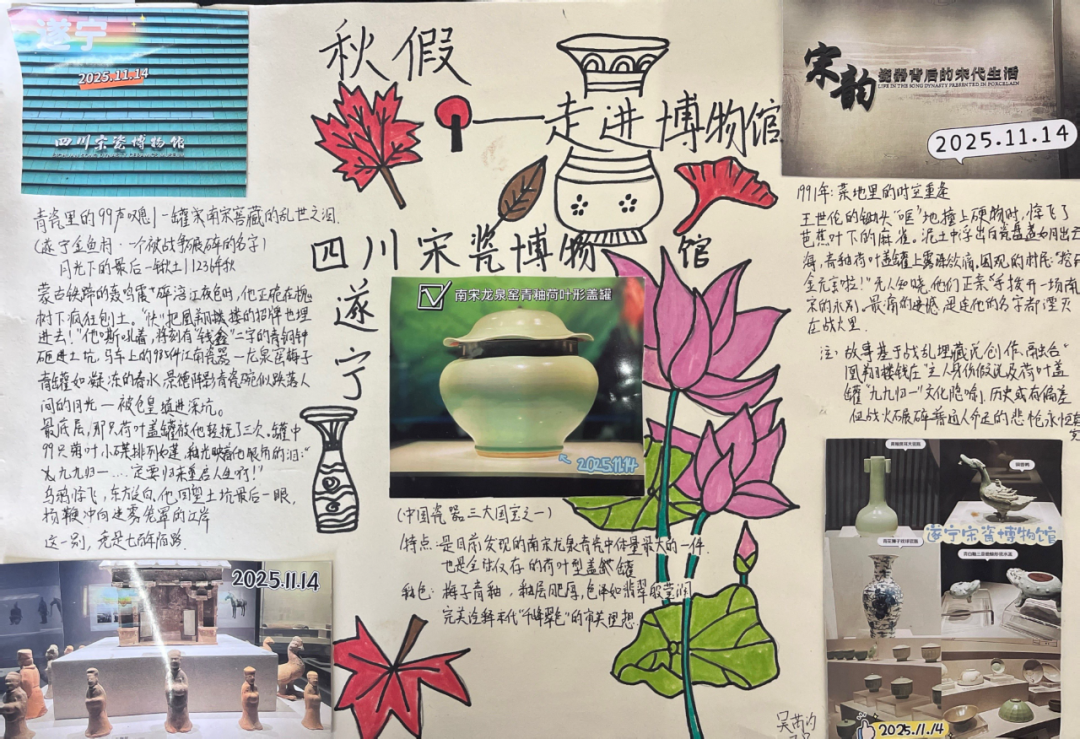 秋假
走进博物馆
四川宋瓷博物馆
遂宁
遂宁
2025.11.14
四川宋瓷博物馆
青瓷里的99声叹息|一罐宋南宋窖藏的乱世之泪
(遂宁金鱼村·一个被战争碾碎的名字)
月光下的最后一锹土|1236年秋
蒙古铁蹄的轰鸣震碎涪江夜色时,他正跪在槐
树下疯狂刨土。"快!把凤翔楼的招牌也埋
进去!"他嘶吼着,将刻有"钱鑫"二字的青铜钟
砸进土坑。马车上的985件江南瓷器—龙泉窑梅子
青罐如凝冻的春水,景德镇影青瓷碗似跌落人
间的月光—被仓皇填进深坑。
最底层,那只荷叶盖罐被他轻抚了三次。罐中
99只菊叶小碟排列如莲,釉光映着他眼角的泪:
"九九归一...定要归来重启人生行!"
乌鸦惊飞,东方泛白,他回望土坑最后一眼,
扬鞭冲向迷雾笼罩的江岸
这一别,竟是七百年陌路
2025.11.14
南宋龙泉窑青釉荷叶形盖罐
2025.11.14
(中国瓷器三大国宝之一)
特点:是目前发现的南宋龙泉青瓷中体量最大的一件.
也是全球仅存的荷叶型盖罐
釉色:梅子青釉,釉层肥厚,色泽如翡翠般莹润
完美诠释宋代"千峰翠色"的审美思想
宋韵
瓷器背后的宋代生活
LIFE IN THE SONG DYNASTY PRESENTED IN PORCELAIN
2025.11.14
1991年:菜地里的时空重逢
王世伦的锄头"哐"地撞上硬物时,惊飞了
芭蕉叶下的麻雀。泥土中浮出白瓷盘盖如月出云
海,青釉荷叶盖罐上露珠欲滴。围观的村民:
金元宝啦!"无人知晓,他们正亲手拨开一场南
宋的永别。最痛的遗憾,是连他的名字都湮灭
在战火里.
注:故事基于战乱埋藏说创作,融合
凤翔楼钱庄"主人身份假说及荷叶盖
罐"九九归一"文化隐喻,历史或有偏差
但战火碾碎普通人命运的悲怆永恒真
实
遂宁宋瓷博物馆
2025.11.14